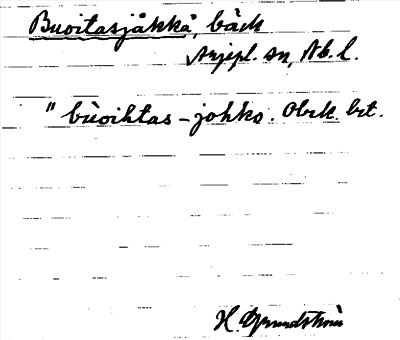 Buoitasjåkkå, bäck
Arjepl. sn, Nb. l.
"bùoihtas-johko. Obek. bet.
H. Grundström